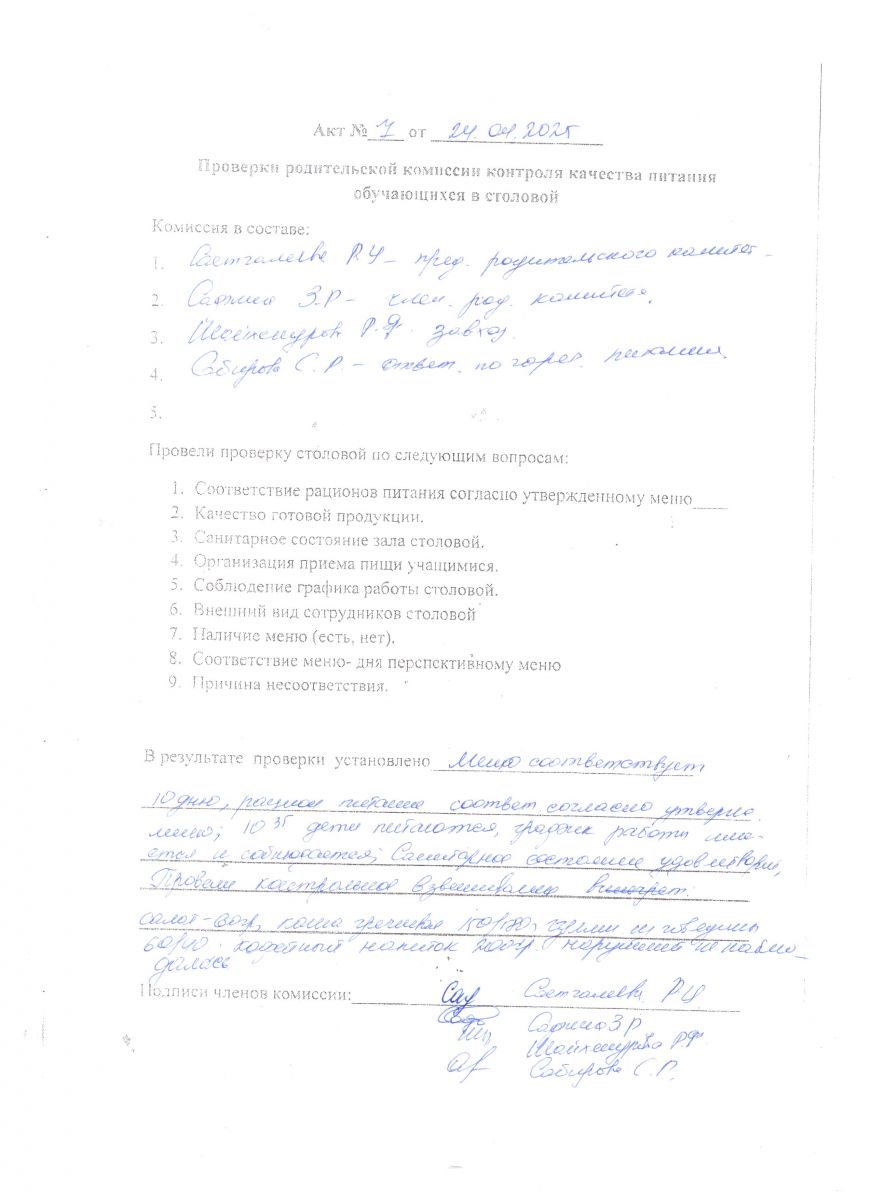 Акт № 7 от 24.04.2025
Проверки родительской комиссии контроля качества питания
обучающихся в столовой
Комиссия в составе:
1. Светгалеева Р.И – пред. родительского комитет-
2. Сафина З.Р – член. род. комитета,
3. Шайхинуров Р.Ф. завхоз.
4. Сабирова С.Р. – ответ. по горяч. питании
5.
Провели проверку столовой по следующим вопросам:
1. Соответствие рационов питания согласно утвержденному меню
2. Качество готовой продукции.
3. Санитарное состояние зала столовой.
4. Организация приема пищи учащимися.
5. Соблюдение графика работы столовой.
6. Внешний вид сотрудников столовой
7. Наличие меню (есть, нет).
8. Соответствие меню- дня перспективному меню
9. Причина несоответствия.
В результате проверки установлено Меню соответствует
10 дню, рацион питания соответ. согласно утвержд.
меню; 10 35 дети питаются, график работы име-
ется и соблюдается; Санитарное состояние удовлетворит,
Провели контрольное взвешивание
салат-60гр, каша гречневая 150/180, из говядины
60/90. кофейный напиток 200гр. нарушений не наблю-
далась
Подписи членов комиссии: Светгалеева Р.И
Сафина З.Р
Шайхинуров Р.Ф.
Сабирова С.Р.